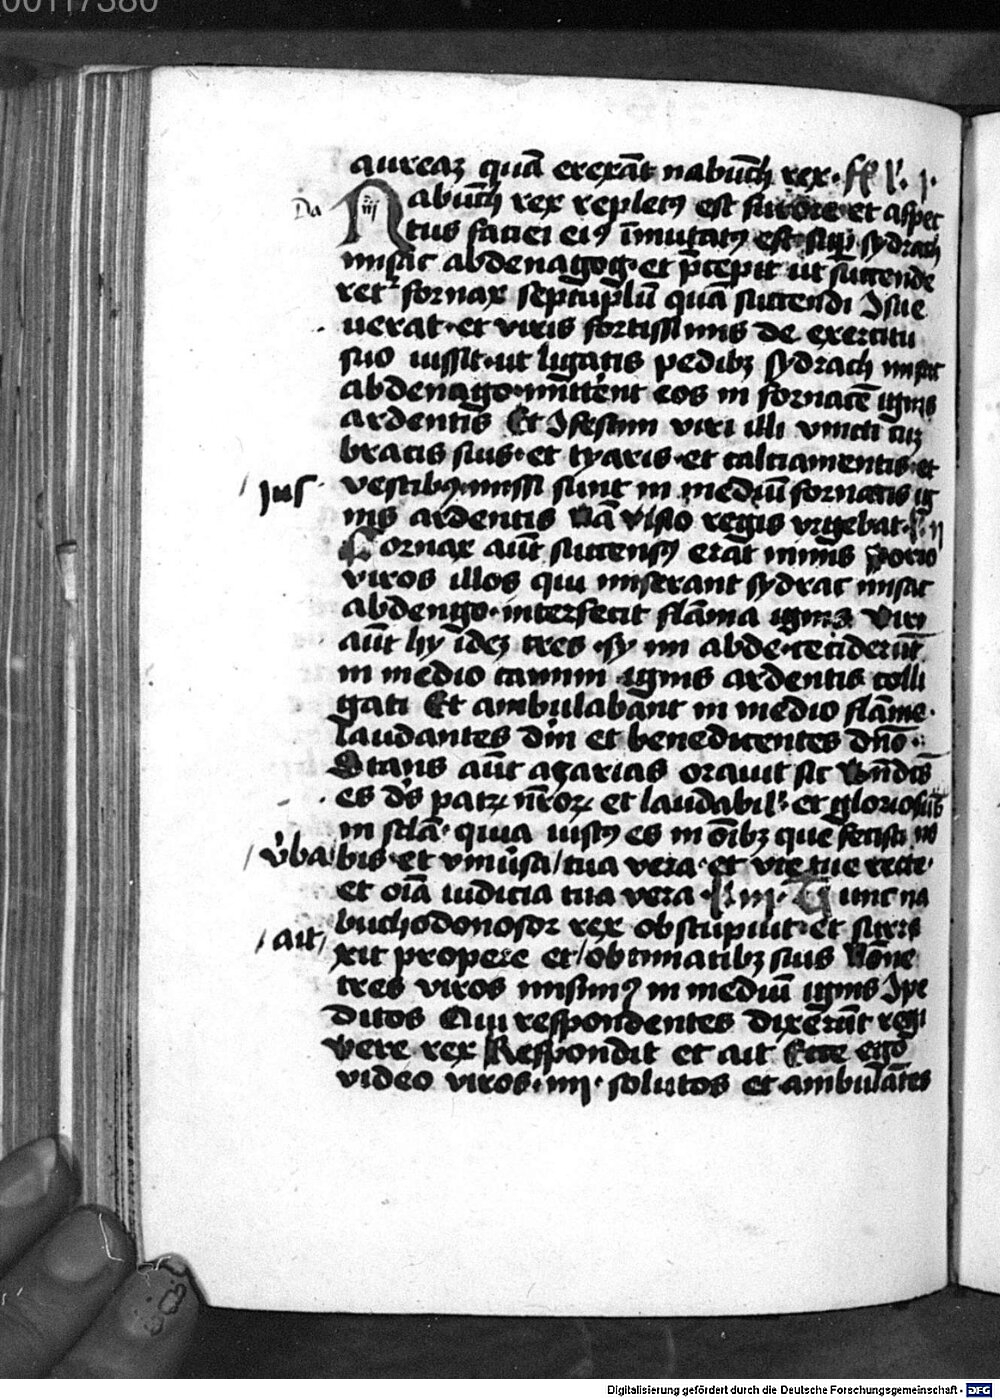 00117380
aureaʒ quā erexāt nabuch̄ rex.
Da
Nabuch̄ rex repletꝰ est furore et aspec
iij
tus faciei eiꝰ īmutatꝰ est suꝑ sydrach
misac abdenagog. et p̄cepit ut succende
ret fornax septuplū quā succendi ꝯsue
uerat. et viris fortissimis de exercitu
suo iussit. ut ligatis pedibꝫ sydrach misac
abdenago. mitterent eos in fornacē ignis
ardentis Et ꝯfestim viri illi vincti cuꝫ
bracis suis. et tyaris. et calciamentis. et
ius
vestibꝰ missi sunt in mediū fornacis ig
nis ardentis Nā visio regis vrgebat.
Fornax aūt succensꝰ erat nimis Porro
viros illos qui miserant sydrac misac
abdengo. interfecit flāma ignis Viri
aūt hy idē tres. sy mi abde. ceciderūt
in medio camini ignis ardentis colli
gati Et ambulabant in medio flāme.
laudantes dm̄ et benedicentes dn̄o.
Stans aūt azarias orauit sic Bn̄dctꝰ
es dꝰs patrꝝ nr̄oꝝ et laudabil. et gloriosū
in scla. quia iustꝰ es in oībꝫ que fecisti no
v̓ba
bis. et vniūsa / tua vera. et vie tue recte.
et oīa iudicia tua vera. iij. Tunc na
buchodonosor rex obstupuit. et surre
ait
xit propere et / obtimatibꝫ suis Nōne
tres viros misimꝰ in mediū ignis ꝯpe
ditos Qui respondentes dixerūt regi
Vere rex Respondit et ait Ecce ego
video viros. iiij. solutos et ambulātes
Digitalisierung gefördert durch die Deutsche Forschungsgemeinschaft - DFG